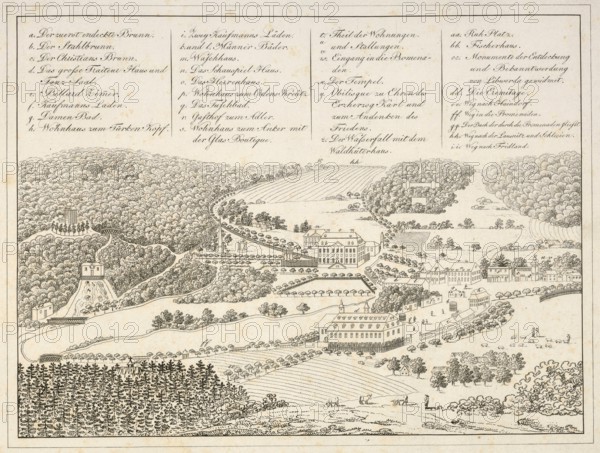 a. Der zuerst endeckte Brunn.
b. Der Stahlbrunn.
c. Der Christians Brunn.
d. Das große Traitine-Haus und
Tanz-Saal.
e. Billard Zimer.
f. Kaufmanns Laden.
g. Damen Bad.
h. Wohnhaus zum Türken Kopf.
i. Zwey Kaufmanns Läden.
k. und l. Männer Bäder.
m. Waschhaus.
n. Das Schauspiel Haus.
o. Das
p. Wohnhaus zum
q. Das Tuschbad.
r. Gasthof zum Adler.
s. Wohnhaus zum Anker mit
der Glas Boutique.
t. Theil der Wohnungen
u. und Stallungen.
w. Eingang in die Promena-
den
x. Der Tempel.
y. Obilisque zu Ehren des
Erzherzog Karl und
zum Andenken des
Friedens.
z. Der Wasserfall mit dem
Waldhüterhaus.
aa. Ruh Platz.
bb. Fischerhaus.
cc. Monumente der Entdeckung
und Bekanntwerdung
von Liberda gewidmet.
dd. Die Ermitage
ee. Weg nach
ff. Weg in die Promenaden.
gg. Der Bach der durch die Promenaden fliest
hh. Weg nach der Lausnitz und Schlesien.
ii. Weg nach Fridland.
hh.
PHOTO12